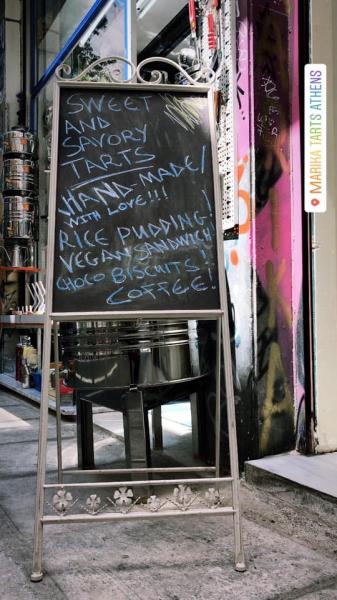 SWEET
AND
SAVORY
TARTS
HAND-MADE/
WITH LOVE!!!
RICE PUDDING!
VEGAN SANDWICH!
CHOCO BISCUITS!
COFFEE!
MARIKA TARTS ATHENS